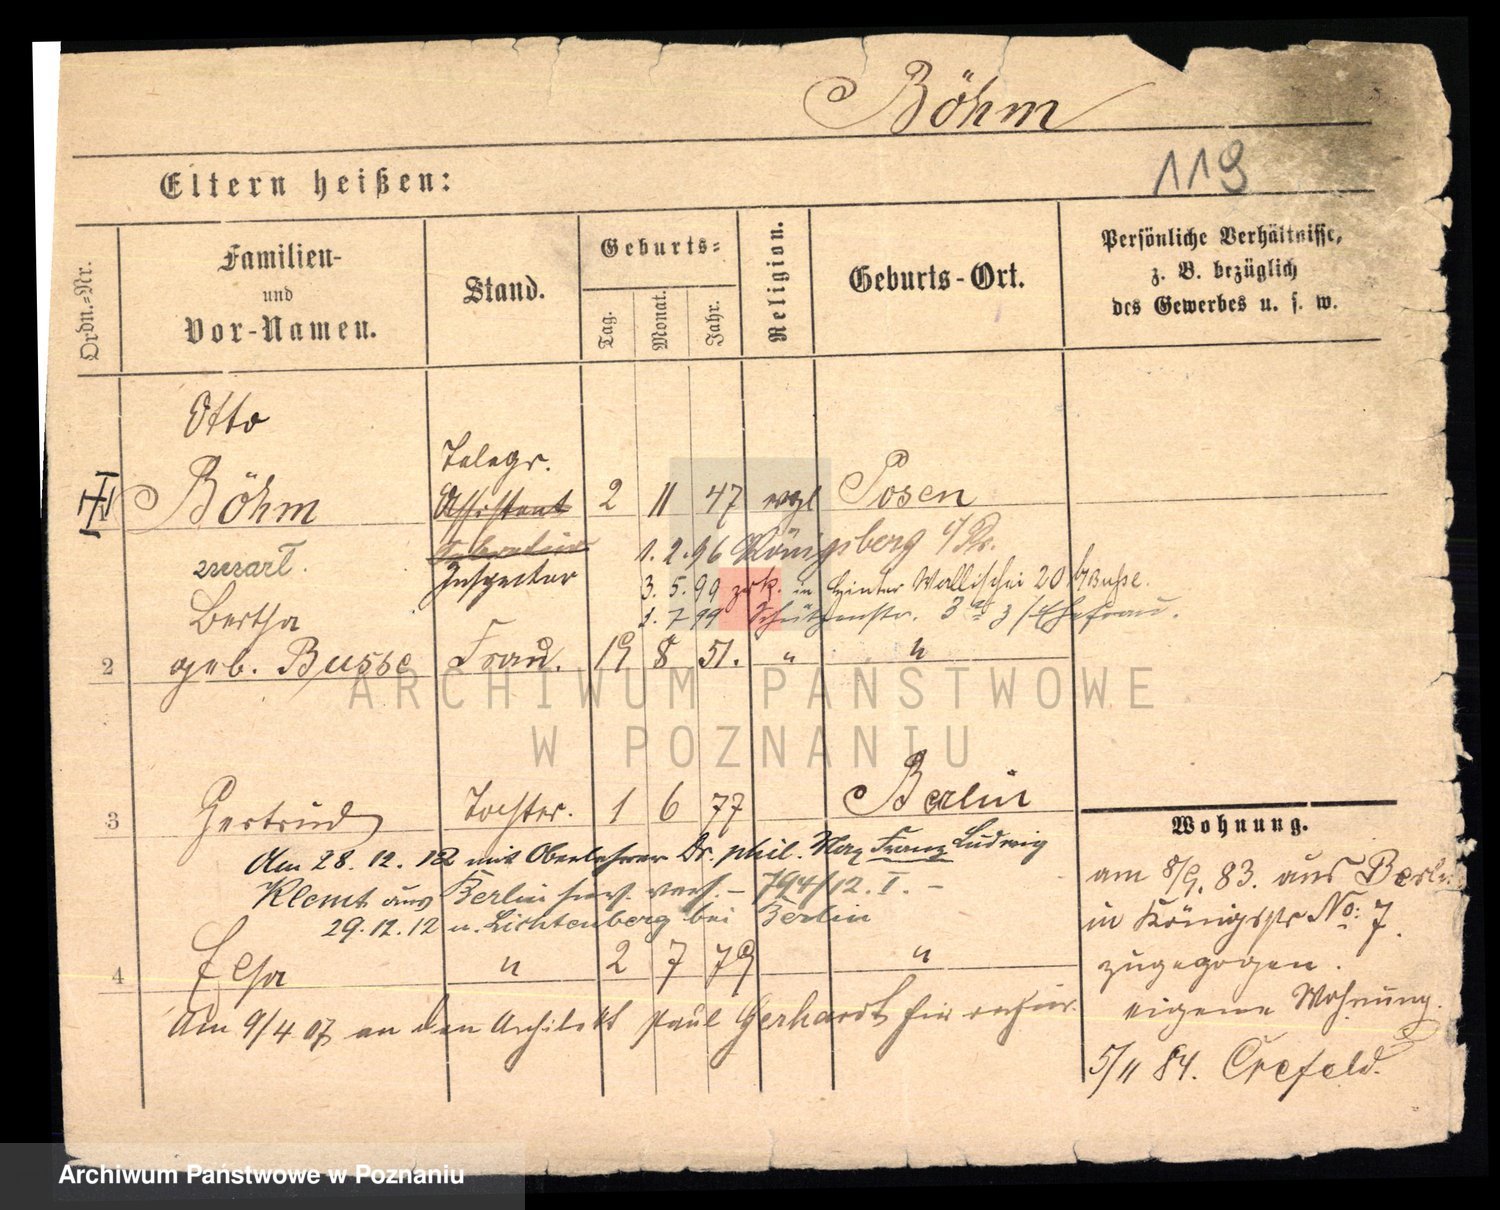 Böhm
119
Eltern heißen:
Ordn.=Nr.
Familien-
und
Vor-Namen.
Stand.
Geburts=
Tag.
Monat.
Jahr.
Religion.
Geburts-Ort.
Persönliche Verhältnisse,
z. B. bezüglich
des Gewerbes u. s. w.
Otto
Böhm
Telegr.
Assistent
Inspector
2 11 47 evgl Posen
1. 2. 96 Königsberg i/Pr.
3. 5. 99 zrk. in Hinter Wallischei 20 b/Busse.
1. 7 99 Schützenstr. 3 / Ehefrau.
2 Bertha
geb. Busse Frau. 19 8 51. " "
ARCHIWUM PAŃSTWOWE
W POZNANIU
3 Gertrud Tochter. 1 6 77 Berlin
Am 28. 12. 12 mit Oberlehrer Dr. phil. Max Franz Ludwig
Klemt aus Berlin 794/12. I. -
29.12.12 n. Lichtenberg bei Berlin
4 Elsa " 2 7 79 "
Am 9/4 07 an den Architekt Paul Gerhardt hier
Wohnung.
am 8/9. 83. aus Berlin
in Königstr No: 7.
zugezogen.
eigene Wohnung.
5/11 84. Crefeld.
Archiwum Państwowe w Poznaniu